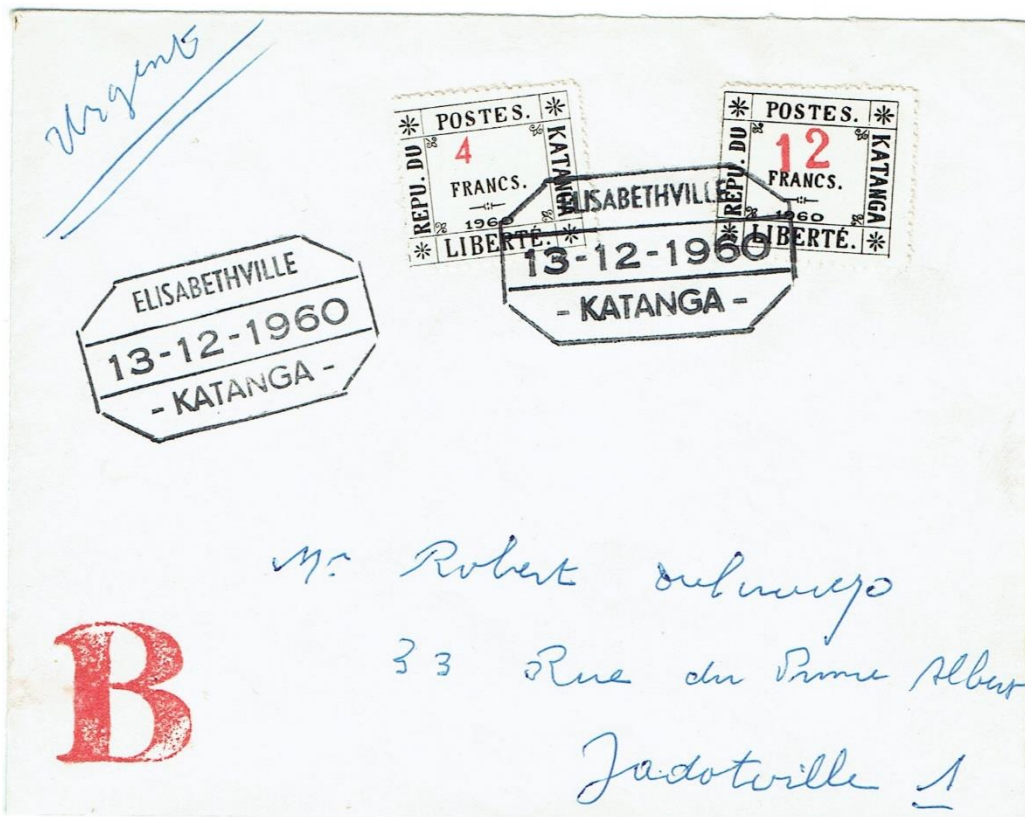 Urgent
POSTES.
REPU. DU
4
FRANCS.
1960
KATANGA
LIBERTÉ.
POSTES.
REPU. DU
12
FRANCS.
1960
KATANGA
LIBERTÉ.
ELISABETHVILLE
13-12-1960
- KATANGA -
ELISABETHVILLE
13-12-1960
- KATANGA -
Mr. Robert
33 Rue du Prince Albert
Jadotville 1
B